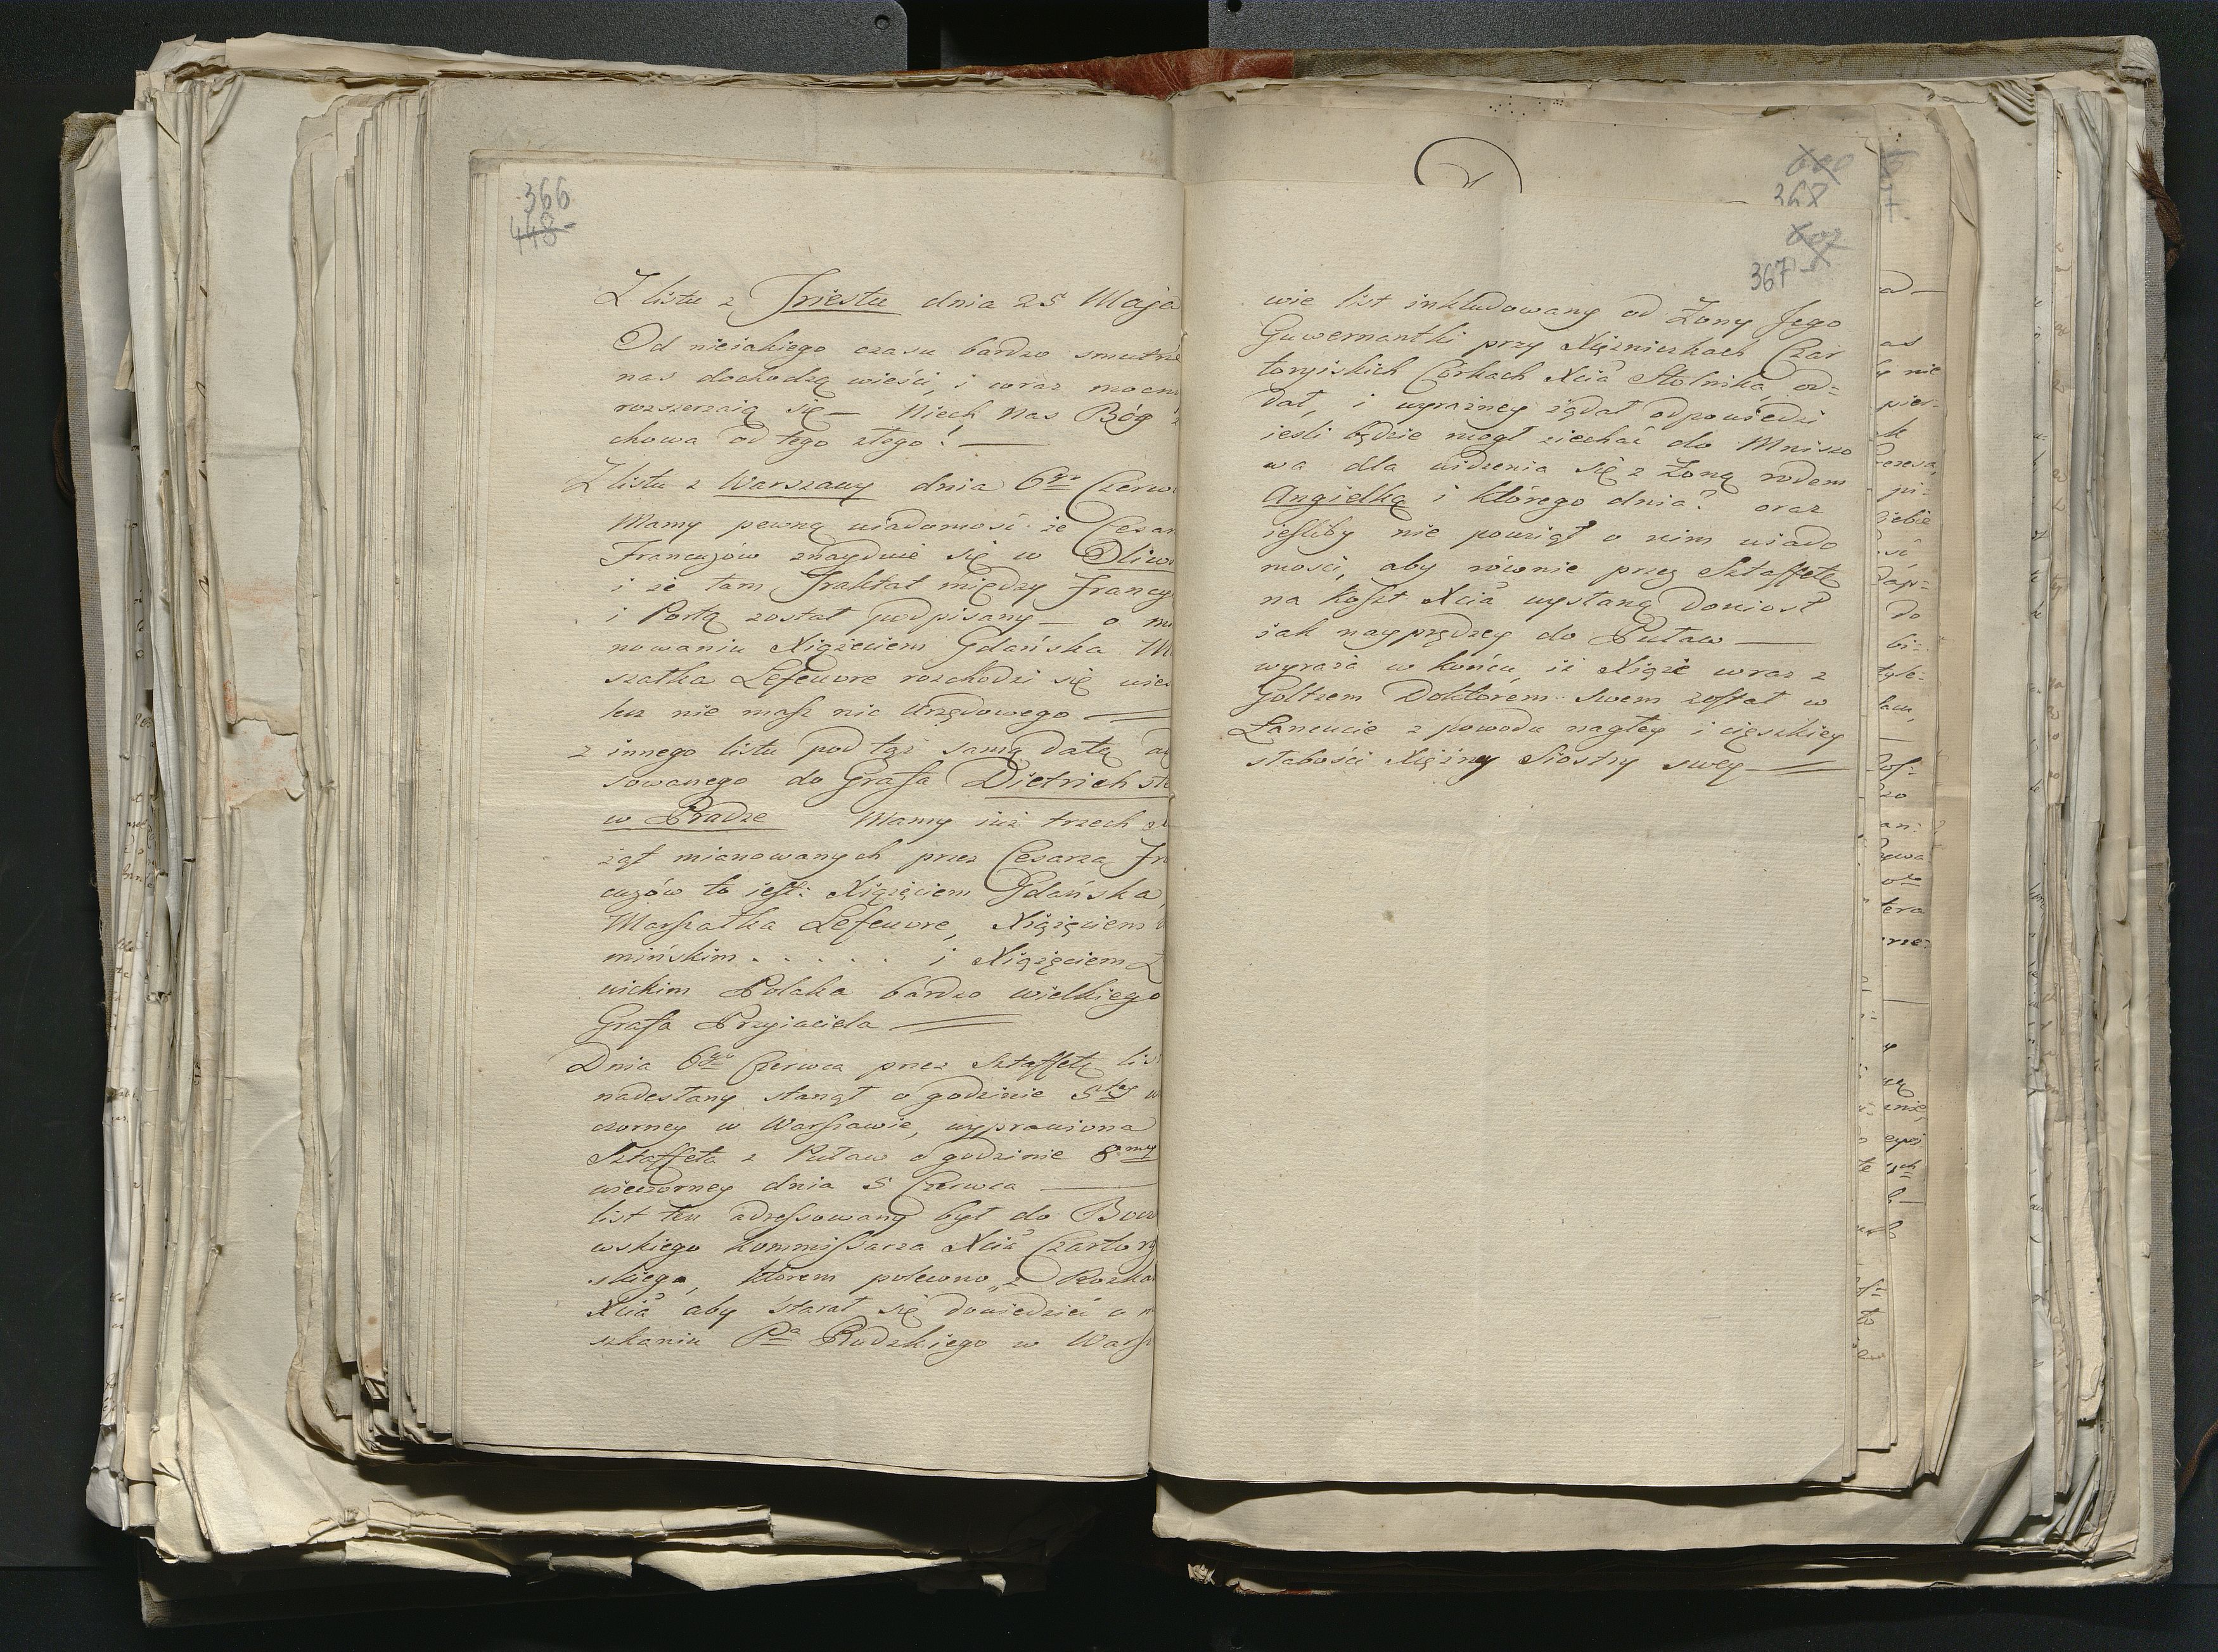 366
448
Z listu z Triestu dnia 25 Maja
Od nieiakiego czasu bardzo smutne
nas dochodzą wieści, i wraz mocn
rozszerzaią się — Niech Nas Bóg
chowa od tego złego! —
Z listu z Warszawy dnia 6go Czerw
Mamy pewną wiadomość że Cesar
Francuzów znayduie się w Oliw
i że tam Traktat między Francy
i Portą został podpisany — o m
nowaniu Xiążęciem Gdańska M
szałka Lefeuvre rozchodzi się wie
lecz nie masz nic Urzędowego —
z innego listu pod tąż samą datą ad
sowanego do Grafa Dietrichst
w Pradze Mamy iuż trzech
żąt mianowanych przez Cesarza Fr
cuzów to iest: Xiążęciem Gdańska,
Marszałka Lefeuvre, Xiążęciem
mińskim . . . . . i Xiążęciem Ł
wickim Polaka bardzo wielkiego
Grafa Przyiaciela —
Dnia 6go Czerwca przez Sztaffetę lis
nadesłany stanął o godzinie 5tey w
czorney w Warszawie, wyprawiona
Sztaffeta z Puław o godzinie 8my
wieczorney dnia 5 Czerwca —
list ten adressowany był do
wskiego Kommissarza Xcia Czartory
skiego, którem polecono, z Rozka
Xcia aby starał się dowiedzieć o m
szkaniu Pa Rudzkiego w Warsz
600
368
602
367
wie list inkludowany od Żony Jego
Guwernantki przy Xiężniczkach Czar
toryiskich Córkach Xcia Stolnika, od=
dał, i wyraźney żądał odpowiedzi
iesli będzie mogł ziechać do Mniszo
wa dla widzenia się z Żoną rodem
Angielką i którego dnia? oraz
iesliby nie powziął o nim wiado
mości, aby równie przez Sztaffetę
na koszt Xcia wysłaną doniosł
iak nayprędzey do Puław —
wyraża w końcu iż Xiąże wraz z
Goltzem Doktorem swem został w
Łancucie z powodu nagłey i cięszkiey
słabości Xiężny Siostry swey —